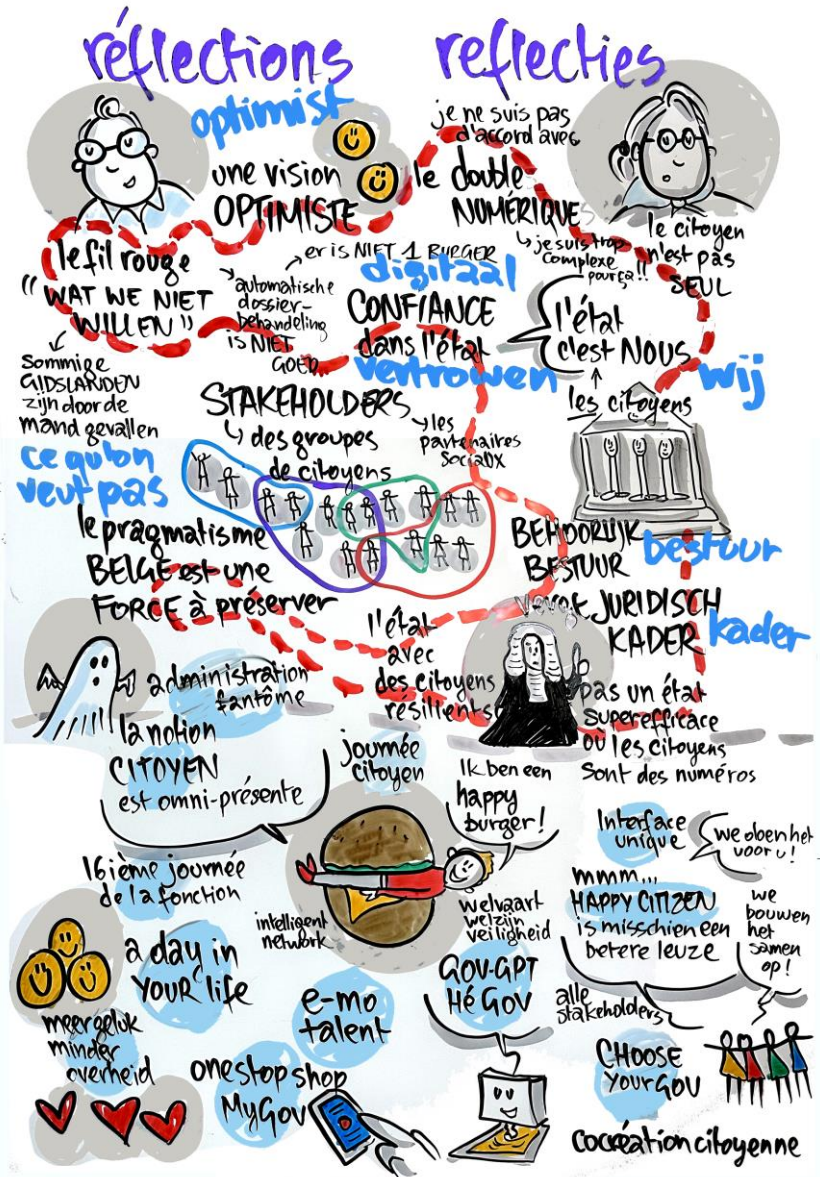 réflections
reflecties
optimist
une vision
OPTIMISTE
je ne suis pas
d'accord avec
le double
NUMÉRIQUE
je suis trop
complexe
pour ça!!
le citoyen
n'est pas
SEUL
le fil rouge
"WAT WE NIET
WILLEN"
Sommige
GIDSLANDEN
zijn door de
mand gevallen
automatische
dossier-
behandeling
is NIET
GOED...
er is NIET 1 BURGER
digitaal
CONFIANCE
dans l'état
vertrouwen
l'état
c'est NOUS
les citoyens
wij
STAKEHOLDERS
des groupes
de citoyens
les
partenaires
sociaux
ce qu'on
veut pas
le pragmatisme
BELGE est une
FORCE à préserver
BEHOORLIJK
BESTUUR
bestuur
JURIDISCH
KADER
kader
l'état
avec
des citoyens
résilients
pas un état
superefficace
où les citoyens
sont des numéros
administration
fantôme
la notion
CITOYEN
est omni-présente
journée
citoyen
Ik ben een
happy
burger!
Interface
unique
we doen het
voor u!
16ième journée
de la fonction
intelligent
network
welvaart
welzijn
veiligheid
mmm...
HAPPY CITIZEN
is misschien een
betere leuze
we
bouwen
het
samen
op!
a day in
YOUR life
e-mo
talent
GOV-GPT
Hé GOV
alle
stakeholders
meer geluk
minder
overheid
one stop shop
MyGov
CHOOSE
YOUR GOV
cocréation citoyenne